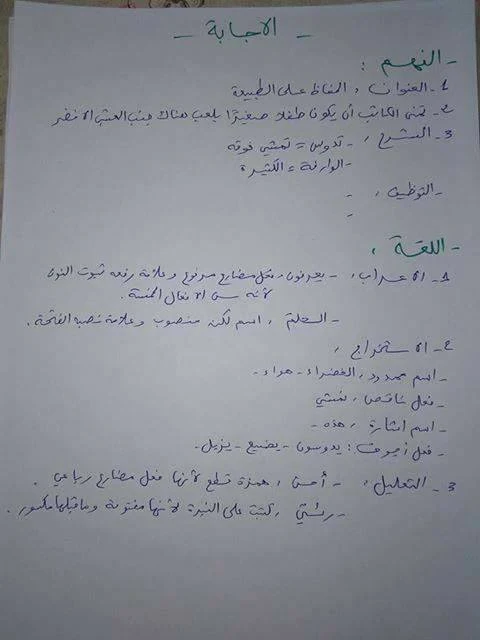 - الاجابة -
- الفهم :
1- العنوان : الحفاظ على الطبيعة
2- تمنى الكاتب أن يكون طفلا صغيرًا يلعب هناك بجنب العشب الأخضر
3- الشرح : - تدوس = تمشي فوقه
- الوارفة = الكثيرة
- التوظيف : -
-
- اللغة :
1- الاعراب : - يعرفون : فعل مضارع مرفوع وعلامة رفعه ثبوت النون
لأنه من الافعال الخمسة .
- السلم : اسم لكن منصوب وعلامة نصبه الفتحة .
2- الاستخراج :
- اسم ممدود : الخضراء - هواء -
- فعل ناقص :
- اسم اشارة : هذه -
- فعل أجوف : يدوسون - يضيع - يزيل -
3- التعليل : - : همزة قطع لأنها فعل مضارع رباعي .
- رئتي : كتبت على النبرة لأنها مفتوحة وما قبلها مكسور .